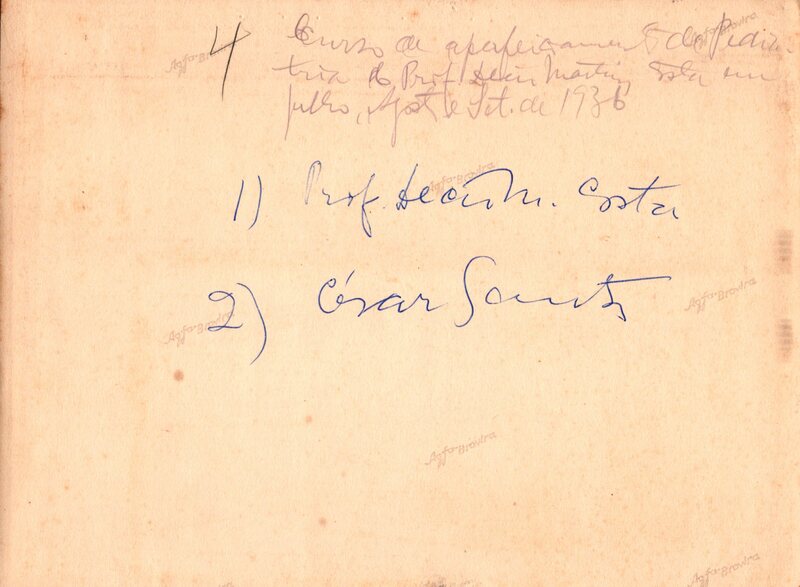 4
Curso de aperfeiçoamento de Pedia-
tria do Prof. Décio Martins Costa em
julho, Agost e Set. de 1936
1) Prof. Décio M. Costa
2) César Santos
Agfa-Brovira
Agfa-Brovira
Agfa-Brovira
Agfa-Brovira
Agfa-Brovira
Agfa-Brovira
Agfa-Brovira